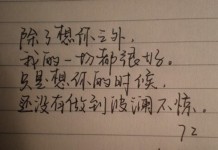 除了想你之外，
我的一切都很好。
只是想你的时候，
还没有做到波澜不惊。
72